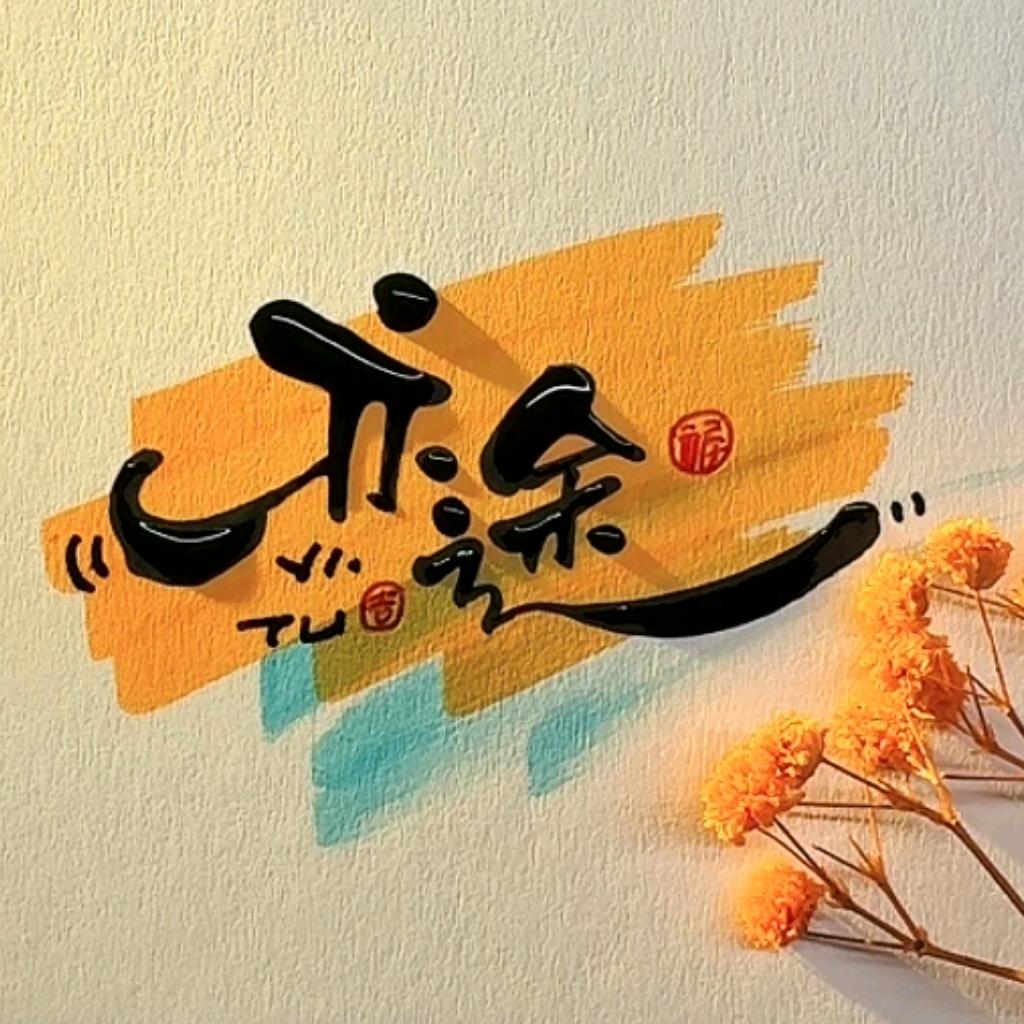 亦途
福
Yi.
TU
吉